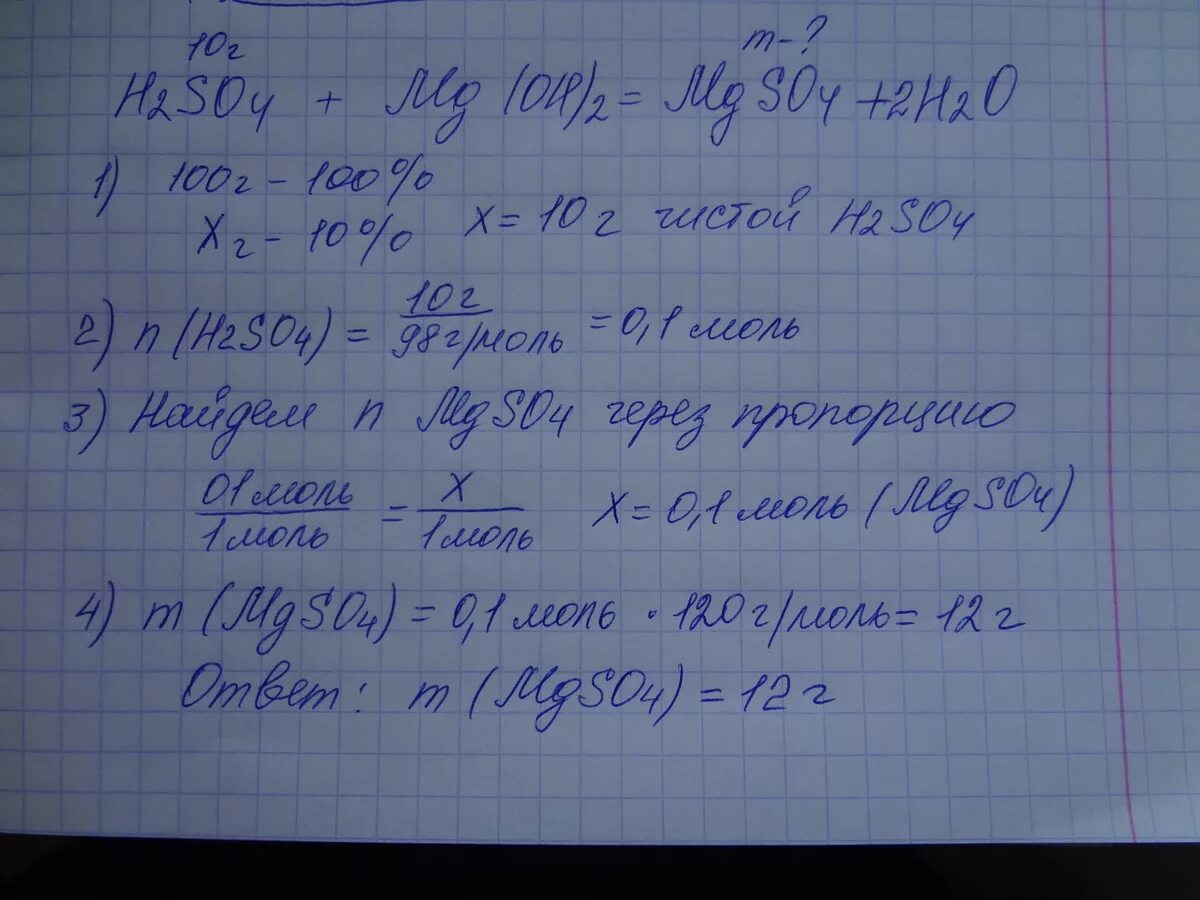 10г m-?
H2SO4 + Mg(OH)2 = MgSO4 + 2H2O
1) 100г - 100%
Xг - 10% X = 10г чистой H2SO4
2) n(H2SO4) = 10г/98г/моль = 0,1 моль
3) Найдем n MgSO4 через пропорцию
01 моль/1 моль = X/1 моль X = 0,1 моль (MgSO4)
4) m(MgSO4) = 0,1 моль · 120г/моль = 12г
Ответ: m(MgSO4) = 12г